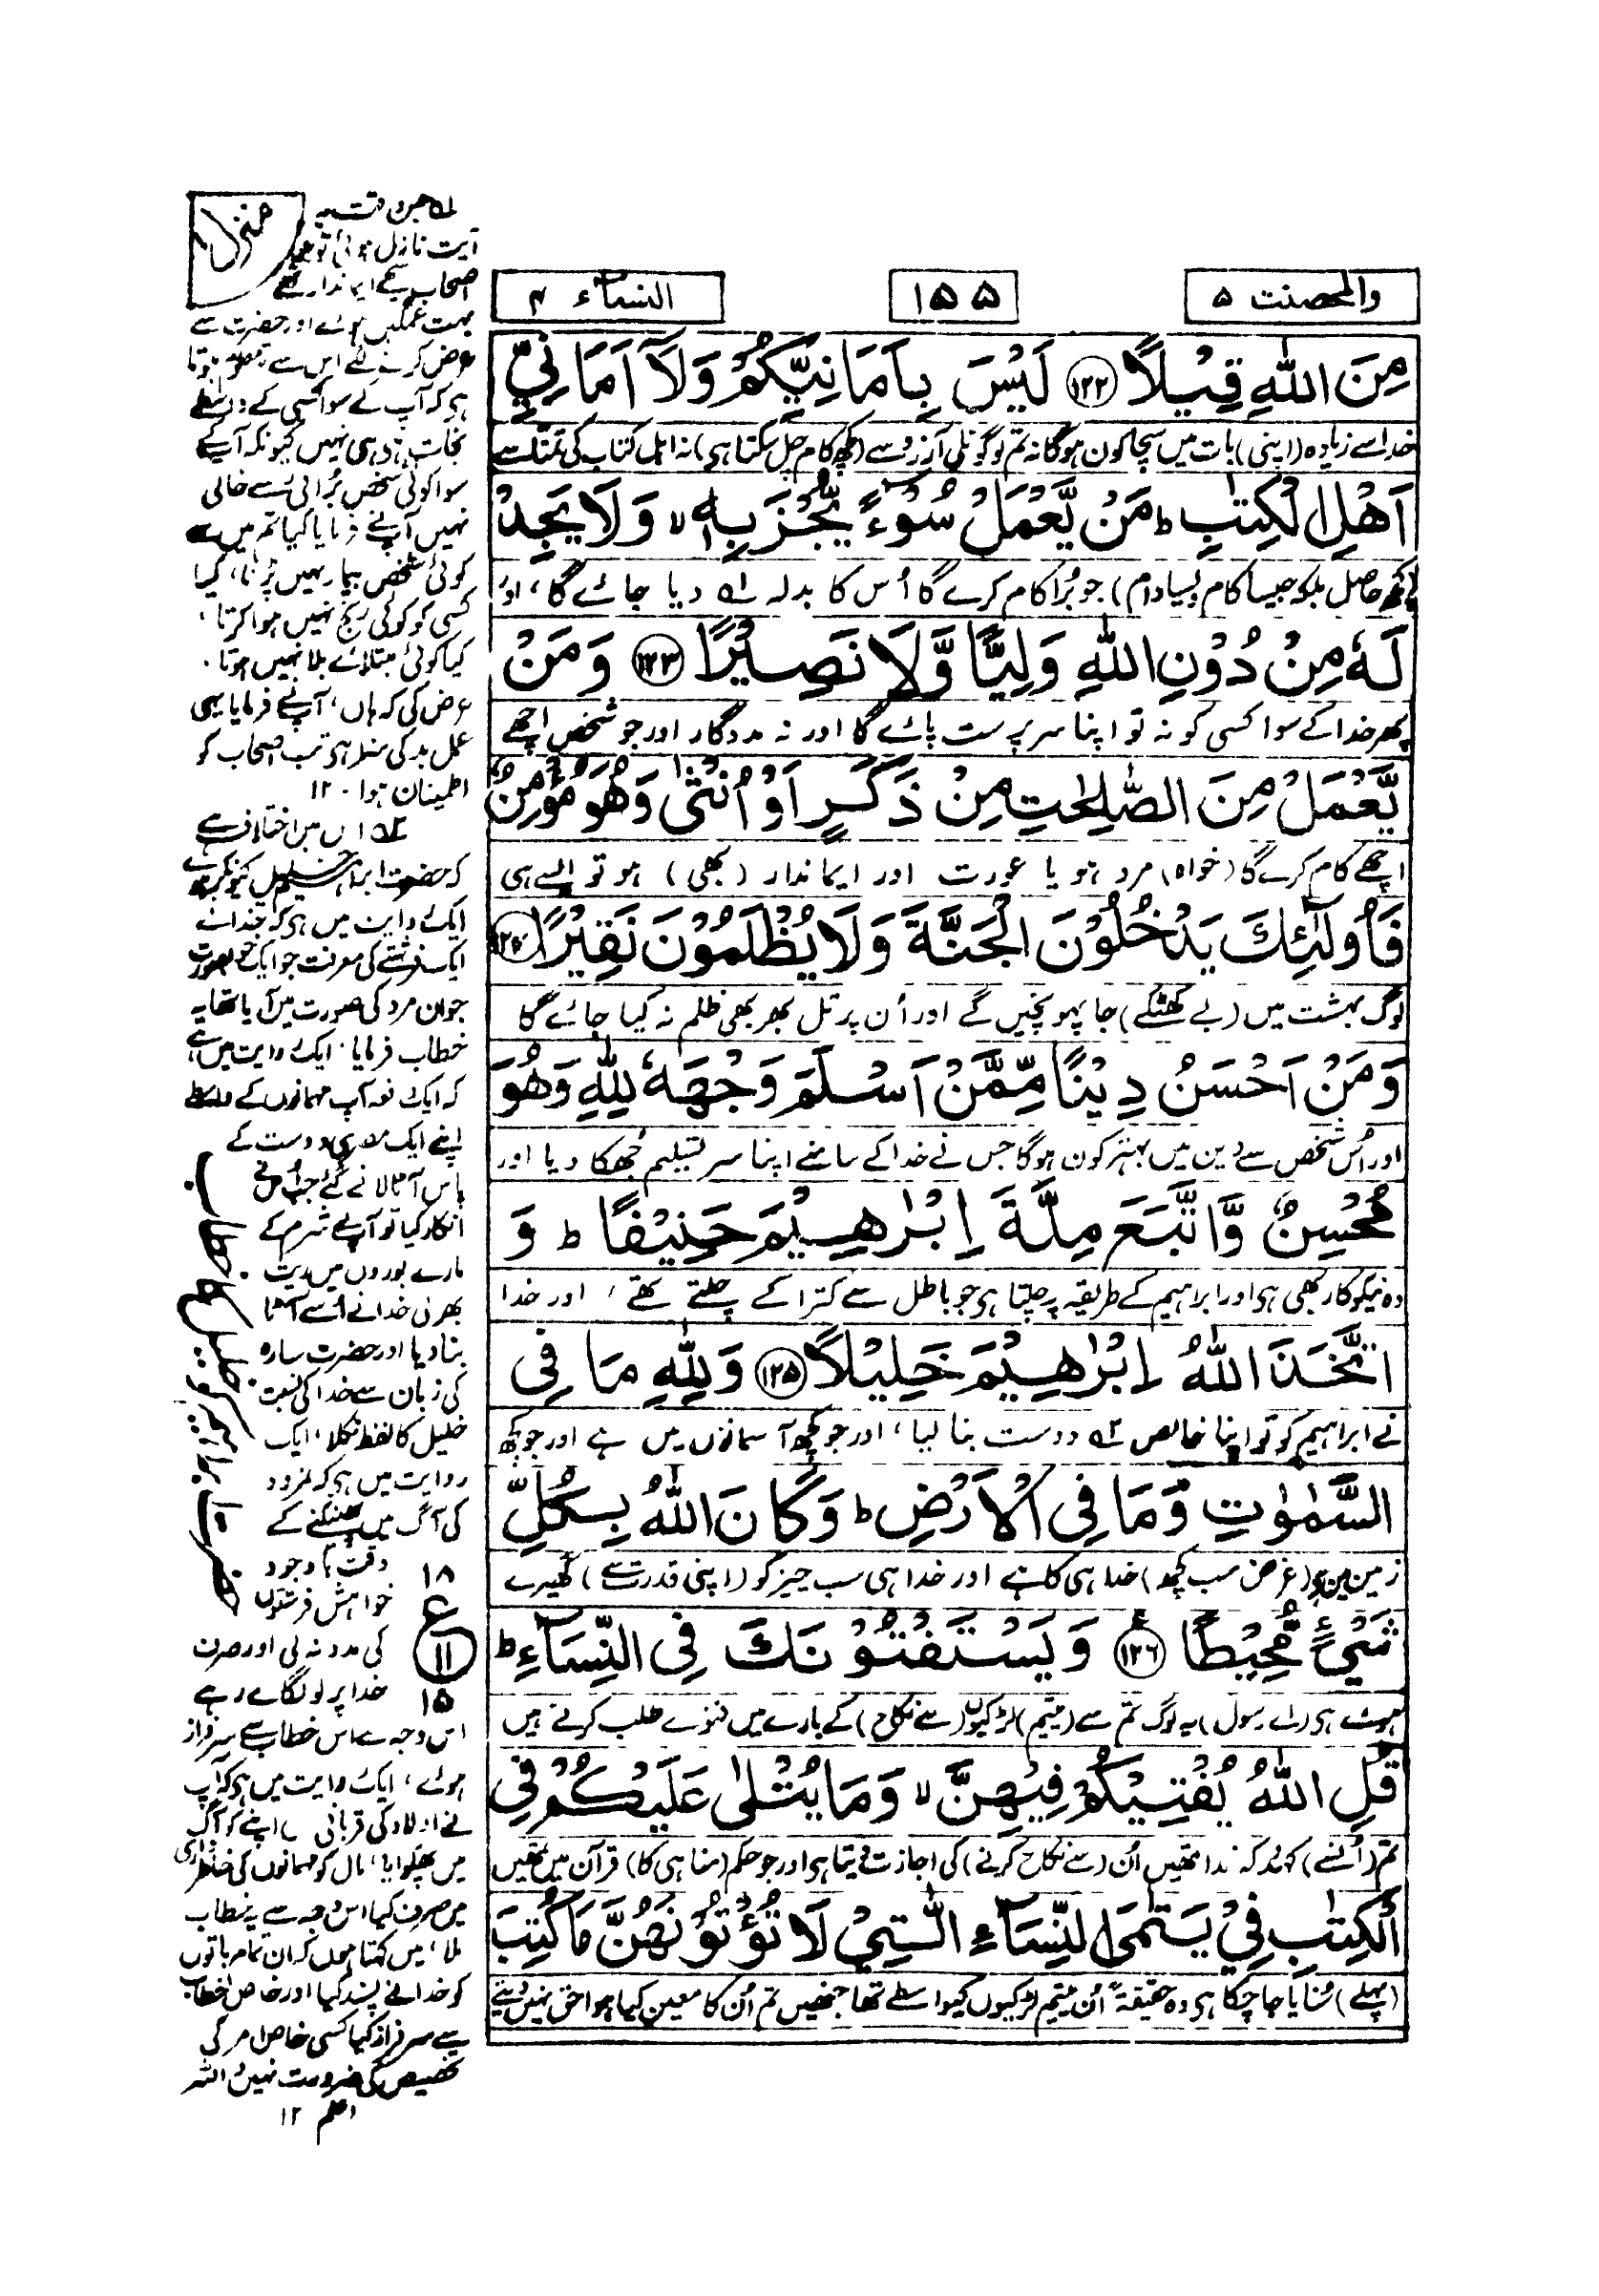 والمحصنت ۵
۱۵۵
النساء ۴
مِنَ اللّٰهِ قِيْلًا ﴿۱۲۲﴾ لَيْسَ بِاَمَانِيِّكُمْ وَلَآ اَمَانِيِّ
خدا سے زیادہ (اپنی) بات میں سچا کون ہوگا نہ تم لوگونکی آرزو سے (کچھ کام چل سکتا ہی) نہ اہل کتاب کی تمنا سے
اَهْلِ الْكِتٰبِ ؕ مَنْ يَّعْمَلْ سُوْٓءًا يُّجْزَ بِهٖ ۙ وَلَا يَجِدْ
کچھ حاصل بلکہ جیسا کام ویسا دام) جو بُرا کام کرے گا اُس کا بدلہ ۱؎ دیا جائے گا، اور
لَهٗ مِنْ دُوْنِ اللّٰهِ وَلِيًّا وَّلَا نَصِيْرًا ﴿۱۲۳﴾ وَمَنْ
پھر خدا کے سوا کسی کو نہ تو اپنا سرپرست پائے گا اور نہ مددگار اور جو شخص اچھے
يَّعْمَلْ مِنَ الصّٰلِحٰتِ مِنْ ذَكَرٍ اَوْ اُنْثٰى وَهُوَ مُؤْمِنٌ
اچھے کام کرے گا (خواہ) مرد ہو یا عورت اور ایماندار (بھی) ہو تو ایسے ہی
فَاُولٰٓئِكَ يَدْخُلُوْنَ الْجَنَّةَ وَلَا يُظْلَمُوْنَ نَقِيْرًا ﴿۱۲۴﴾
لوگ بہشت میں (بے کھٹکے) جا پہونچیں گے اور اُن پر تل بھر بھی ظلم نہ کیا جائے گا
وَمَنْ اَحْسَنُ دِيْنًا مِّمَّنْ اَسْلَمَ وَجْهَهٗ لِلّٰهِ وَهُوَ
اور اُس شخص سے دین میں بہتر کون ہوگا جس نے خدا کے سامنے اپنا سر تسلیم جُھکا دیا اور
مُحْسِنٌ وَّاتَّبَعَ مِلَّةَ اِبْرٰهِيْمَ حَنِيْفًا ؕ وَ
وہ نیکو کار بھی ہی اور ابراہیم کے طریقہ پر چلتا ہی جو باطل سے کترا کے چلتے تھے، اور خدا
اتَّخَذَ اللّٰهُ اِبْرٰهِيْمَ خَلِيْلًا ﴿۱۲۵﴾ وَلِلّٰهِ مَا فِى
نے ابراہیم کو تو اپنا خالص ۲؎ دوست بنا لیا، اور جو کچھ آسمانوں میں ہے اور جو کچھ
السَّمٰوٰتِ وَمَا فِى الْاَرْضِ ؕ وَكَانَ اللّٰهُ بِكُلِّ
زمین میں ہو (غرض سب کچھ) خدا ہی کا ہے اور خدا ہی سب چیز کو (اپنی قدرت سے) گھیرے
شَىْءٍ مُّحِيْطًا ﴿۱۲۶﴾ وَيَسْتَفْتُوْنَكَ فِى النِّسَآءِ ؕ
ہوئے ہی (اے رسول) یہ لوگ تم سے (یتیم) لڑکیوں (سے نکاح) کے بارے میں فتوے طلب کرتے ہیں
قُلِ اللّٰهُ يُفْتِيْكُمْ فِيْهِنَّ ۙ وَمَا يُتْلٰى عَلَيْكُمْ فِى
تم (اُنسے) کہدو کہ خدا تمھیں اُن (سے نکاح کرنے) کی اجازت دیتا ہی اور جو حکم (مناہی کا) قرآن میں تمھیں
الْكِتٰبِ فِىْ يَتٰمَى النِّسَآءِ الّٰتِىْ لَا تُؤْتُوْنَهُنَّ مَا كُتِبَ
(پہلے) سُنایا جا چکا ہی وہ حقیقۃً اُن یتیم لڑکیوں کیواسطے تھا جنھیں تم اُن کا معین کیا ہوا حق نہیں دیتے
۱؎ جس وقت یہ
آیت نازل ہوئی تو
اصحاب سچے ایماندار تھے
بہت غمگین ہوئے اور حضرت سے
عرض کرنے لگے اس سے معلوم ہوتا
ہی کہ آپ کے سوا کسی کے واسطے
نجات ہی نہیں کیونکہ آپ کے
سوا کوئی شخص بُرائی سے خالی
نہیں آپنے فرمایا کیا تم میں سے
کوئی شخص بیمار نہیں پڑتا، کیا
کسی کو کوئی رنج نہیں ہوا کرتا،
کیا کوئی مبتلائے بلا نہیں ہوتا۔
عرض کی کہ ہاں، آپنے فرمایا یہی
عمل بد کی سزا ہی تب اصحاب کو
اطمینان ہوا۔ ۱۲
۲؎ اس میں اختلاف ہے
کہ حضرت ابراہیم خلیل کیونکر ہوے
ایک روایت میں ہی کہ خدا نے
ایک فرشتے کی معرفت جو ایک خوبصورت
جوان مرد کی صورت میں آیا تھا یہ
خطاب فرمایا۔ ایک روایت میں ہے
کہ ایک دفعہ آپ مہمانوں کے واسطے
اپنے ایک مصری دوست کے
پاس آٹا لانے گئے جب اُس نے
انکار کیا تو آپنے شرم کے
مارے بوروں میں ریت
بھر لی خدا نے اُسے آٹا
بنا دیا اور حضرت سارہ
کی زبان سے خدا کی نسبت
خلیل کا لفظ نکلا، ایک
روایت میں ہی کہ نمرود
کی آگ میں پھینکنے کے
وقت باوجود
خواہش فرشتوں
کی مدد نہ لی اور صرف
خدا پر لو لگائے رہے
اس وجہ سے اس خطاب سے سرفراز
ہوئے، ایک روایت میں ہی کہ آپ
نے اولاد کی قربانی اپنے کو آگ
میں پھکوایا، مال کو مہمانوں کی خاطر داری
میں صرف کیا اس وجہ سے یہ خطاب
ملا، میں کہتا ہوں کہ ان تمام باتوں
کو خدا نے پسند کیا اور خاص خطاب
سے سرفراز کیا کسی خاص امر کی
تخصیص کی ضرورت نہیں واللہ
اعلم ۱۲
۱۸
ع
۱۱
۱۵